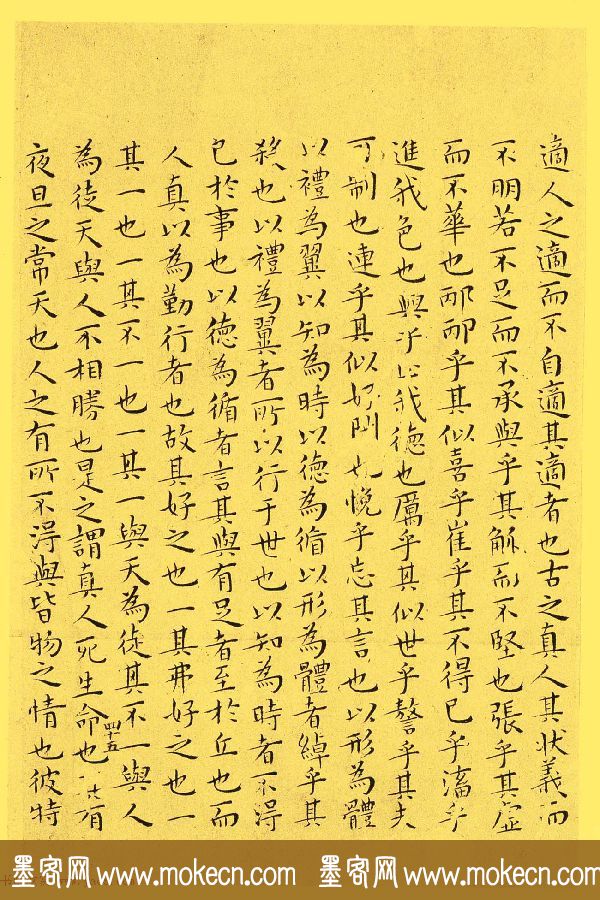 適人之適而不自適其適者也古之真人其狀義而
不朋若不足而不承與乎其觚而不堅也張乎其虛
而不華也邴邴乎其似喜乎崔乎其不得已乎滀乎
進我色也與乎止我德也厲乎其似世乎謷乎其未
可制也連乎其似好閉也悅乎忘其言也以形為體
以禮為翼以知為時以德為循以形為體者綽乎其
殺也以禮為翼者所以行于世也以知為時者不得
已於事也以德為循者言其與有足者至於丘也而
人真以為勤行者也故其好之也一其弗好之也一
其一也一其不一也一其一與天為徒其不一與人
為徒天與人不相勝也是之謂真人死生命也其有
四十五
夜旦之常天也人之有所不得與皆物之情也彼特
墨客网 www.mokecn.com 墨客网 www.mokecn.com